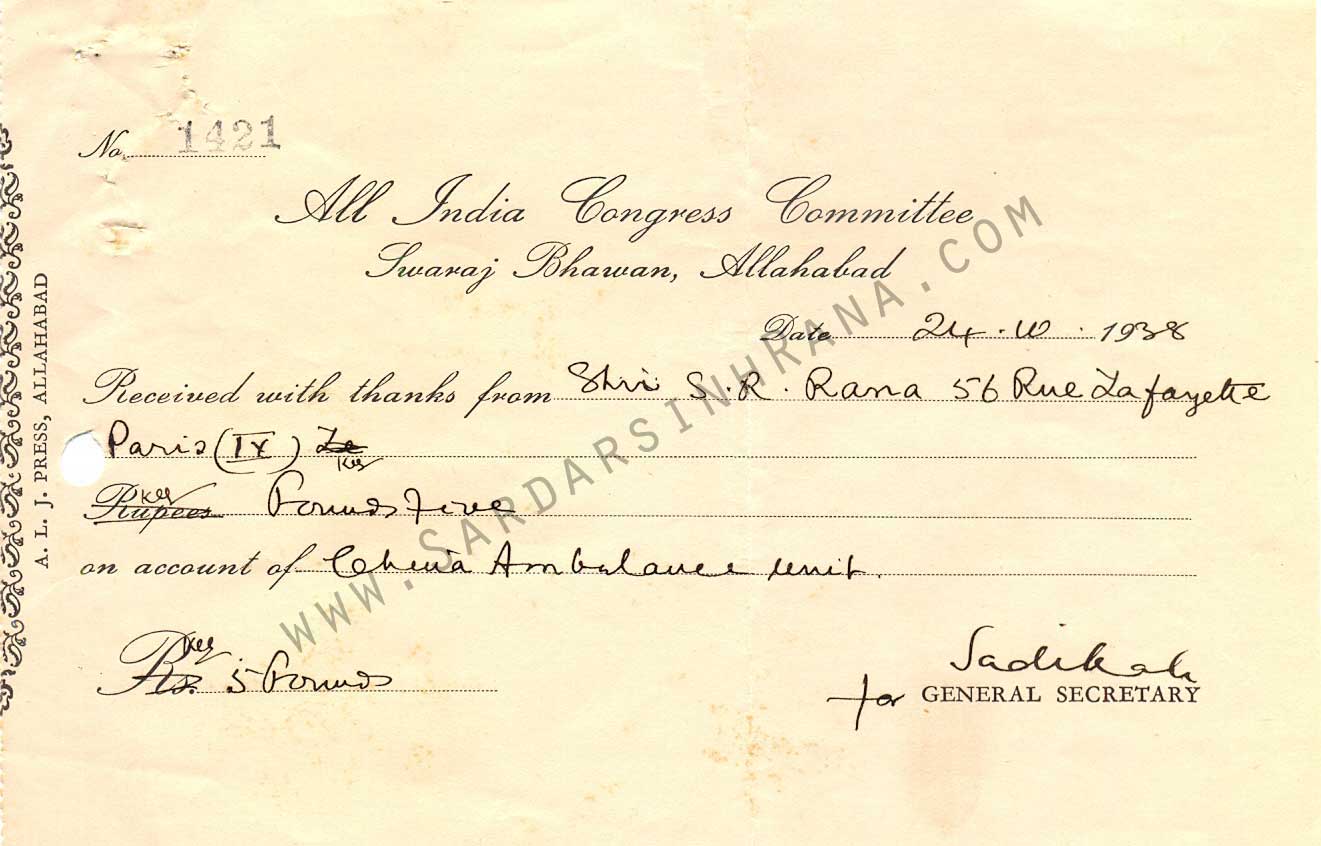 No. 1421
All India Congress Committee
Swaraj Bhawan, Allahabad
Date 24.10.1938
Received with thanks from Shri S. R. Rana 56 Rue Lafayette
Paris (IX)
Rupees Pounds five
on account of China Ambulance unit.
Rs. 5 Pounds
Sadikali
for GENERAL SECRETARY
A. L. J. PRESS, ALLAHABAD
WWW.SARDARSINHRANA.COM